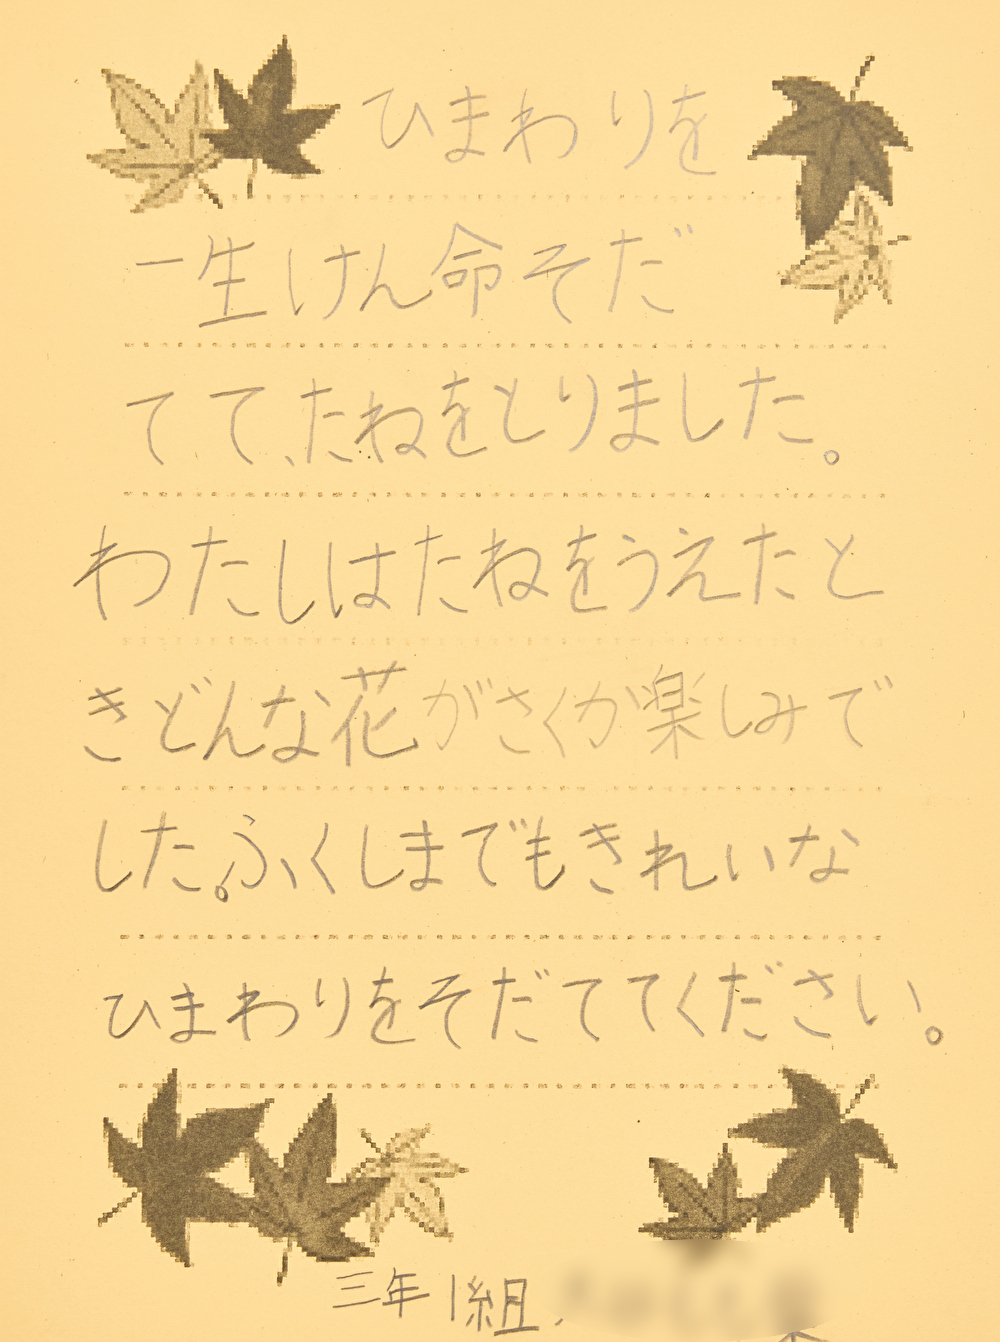 ひまわりを
一生けん命そだ
てて、たねをとりました。
わたしはたねをうえたと
きどんな花がさくか楽しみで
した。ふくしまでもきれいな
ひまわりをそだててください。
三年1組.